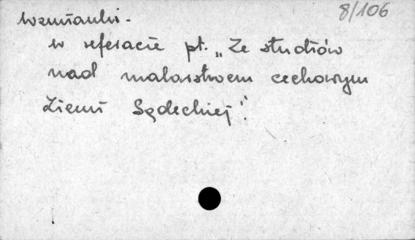 8/106
wzmianki -
w referacie pt. „Ze studiów
nad malarstwem cechowym
Ziemi Sądeckiej".